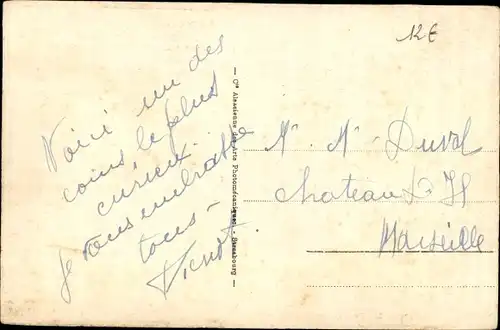 12€
Voici un des
coins le plus
curieux.
Je vous embrasse
tous -
— Cie Alsacienne des Arts Photomécaniques - Strasbourg —
M. M. Duval
Chateau
Marseille